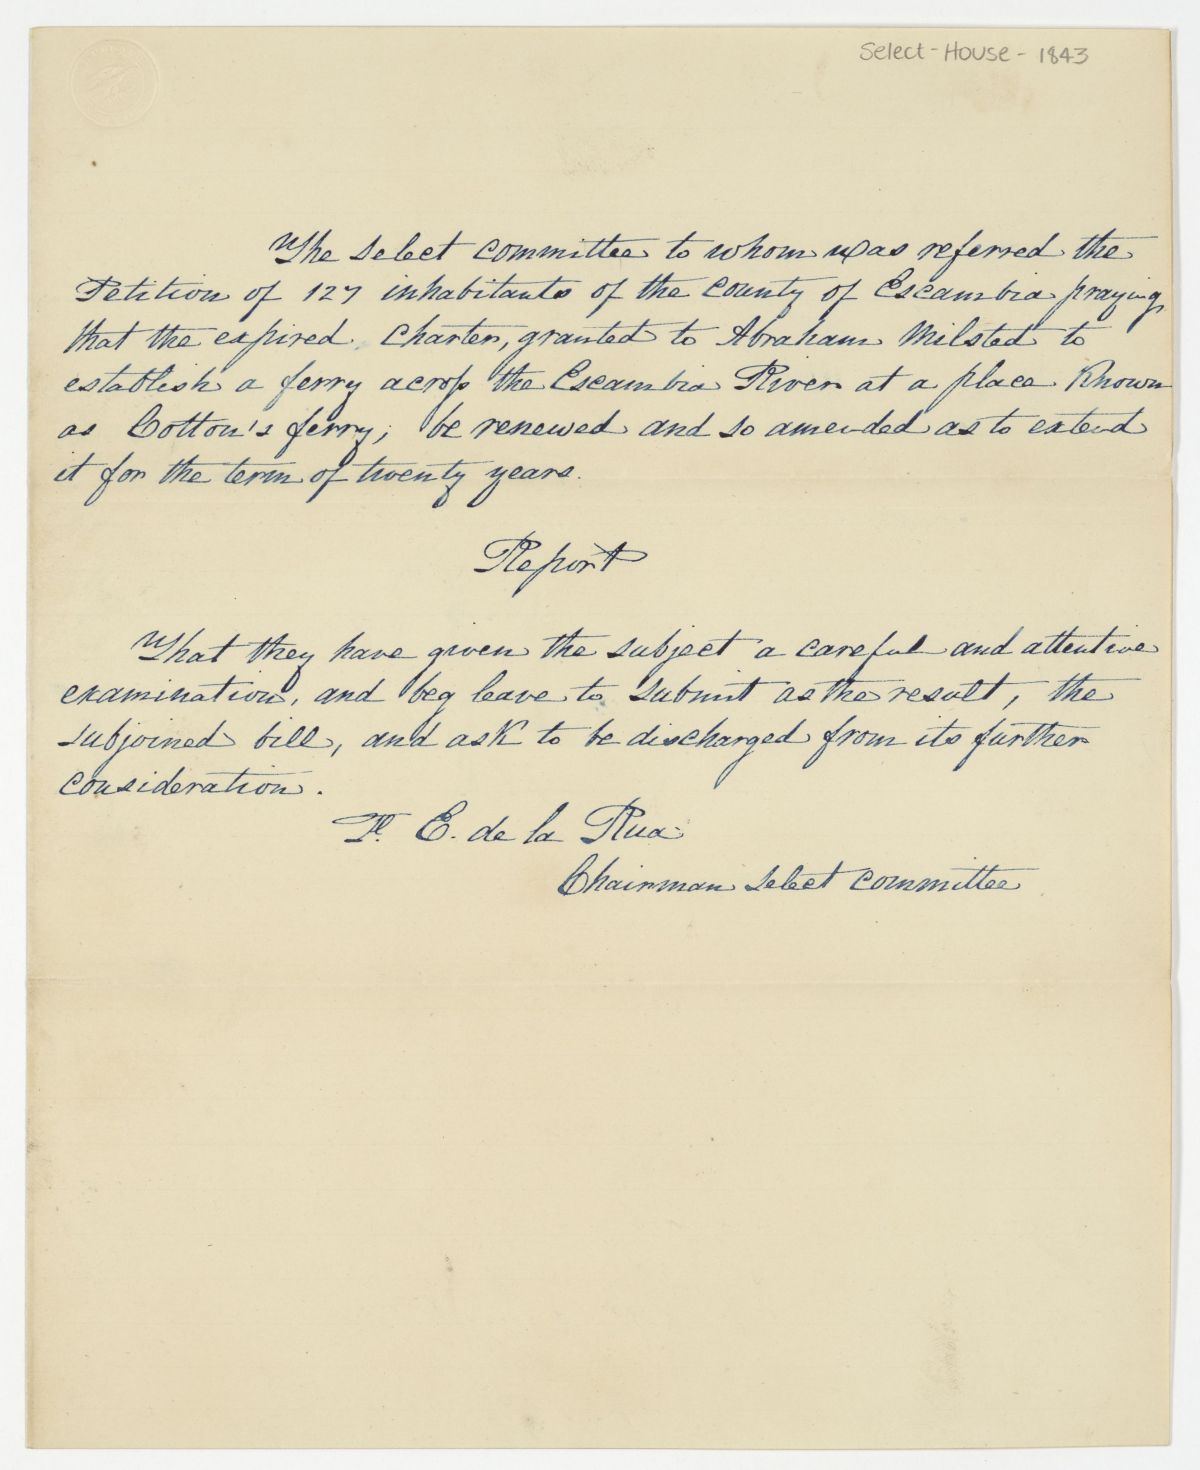 Select - House - 1843
The select committee to whom was referred the
Petition of 127 inhabitants of the county of Escambia praying
that the expired charter, granted to Abraham Milsted to
establish a ferry across the Escambia River at a place Known
as Cotton's ferry; be renewed and so amended as to extend
it for the term of twenty years.
Report
That they have given the subject a careful and attentive
examination, and beg leave to submit as the result, the
subjoined bill, and ask to be discharged from its further
consideration.
F. E. de la Rua
Chairman select committee